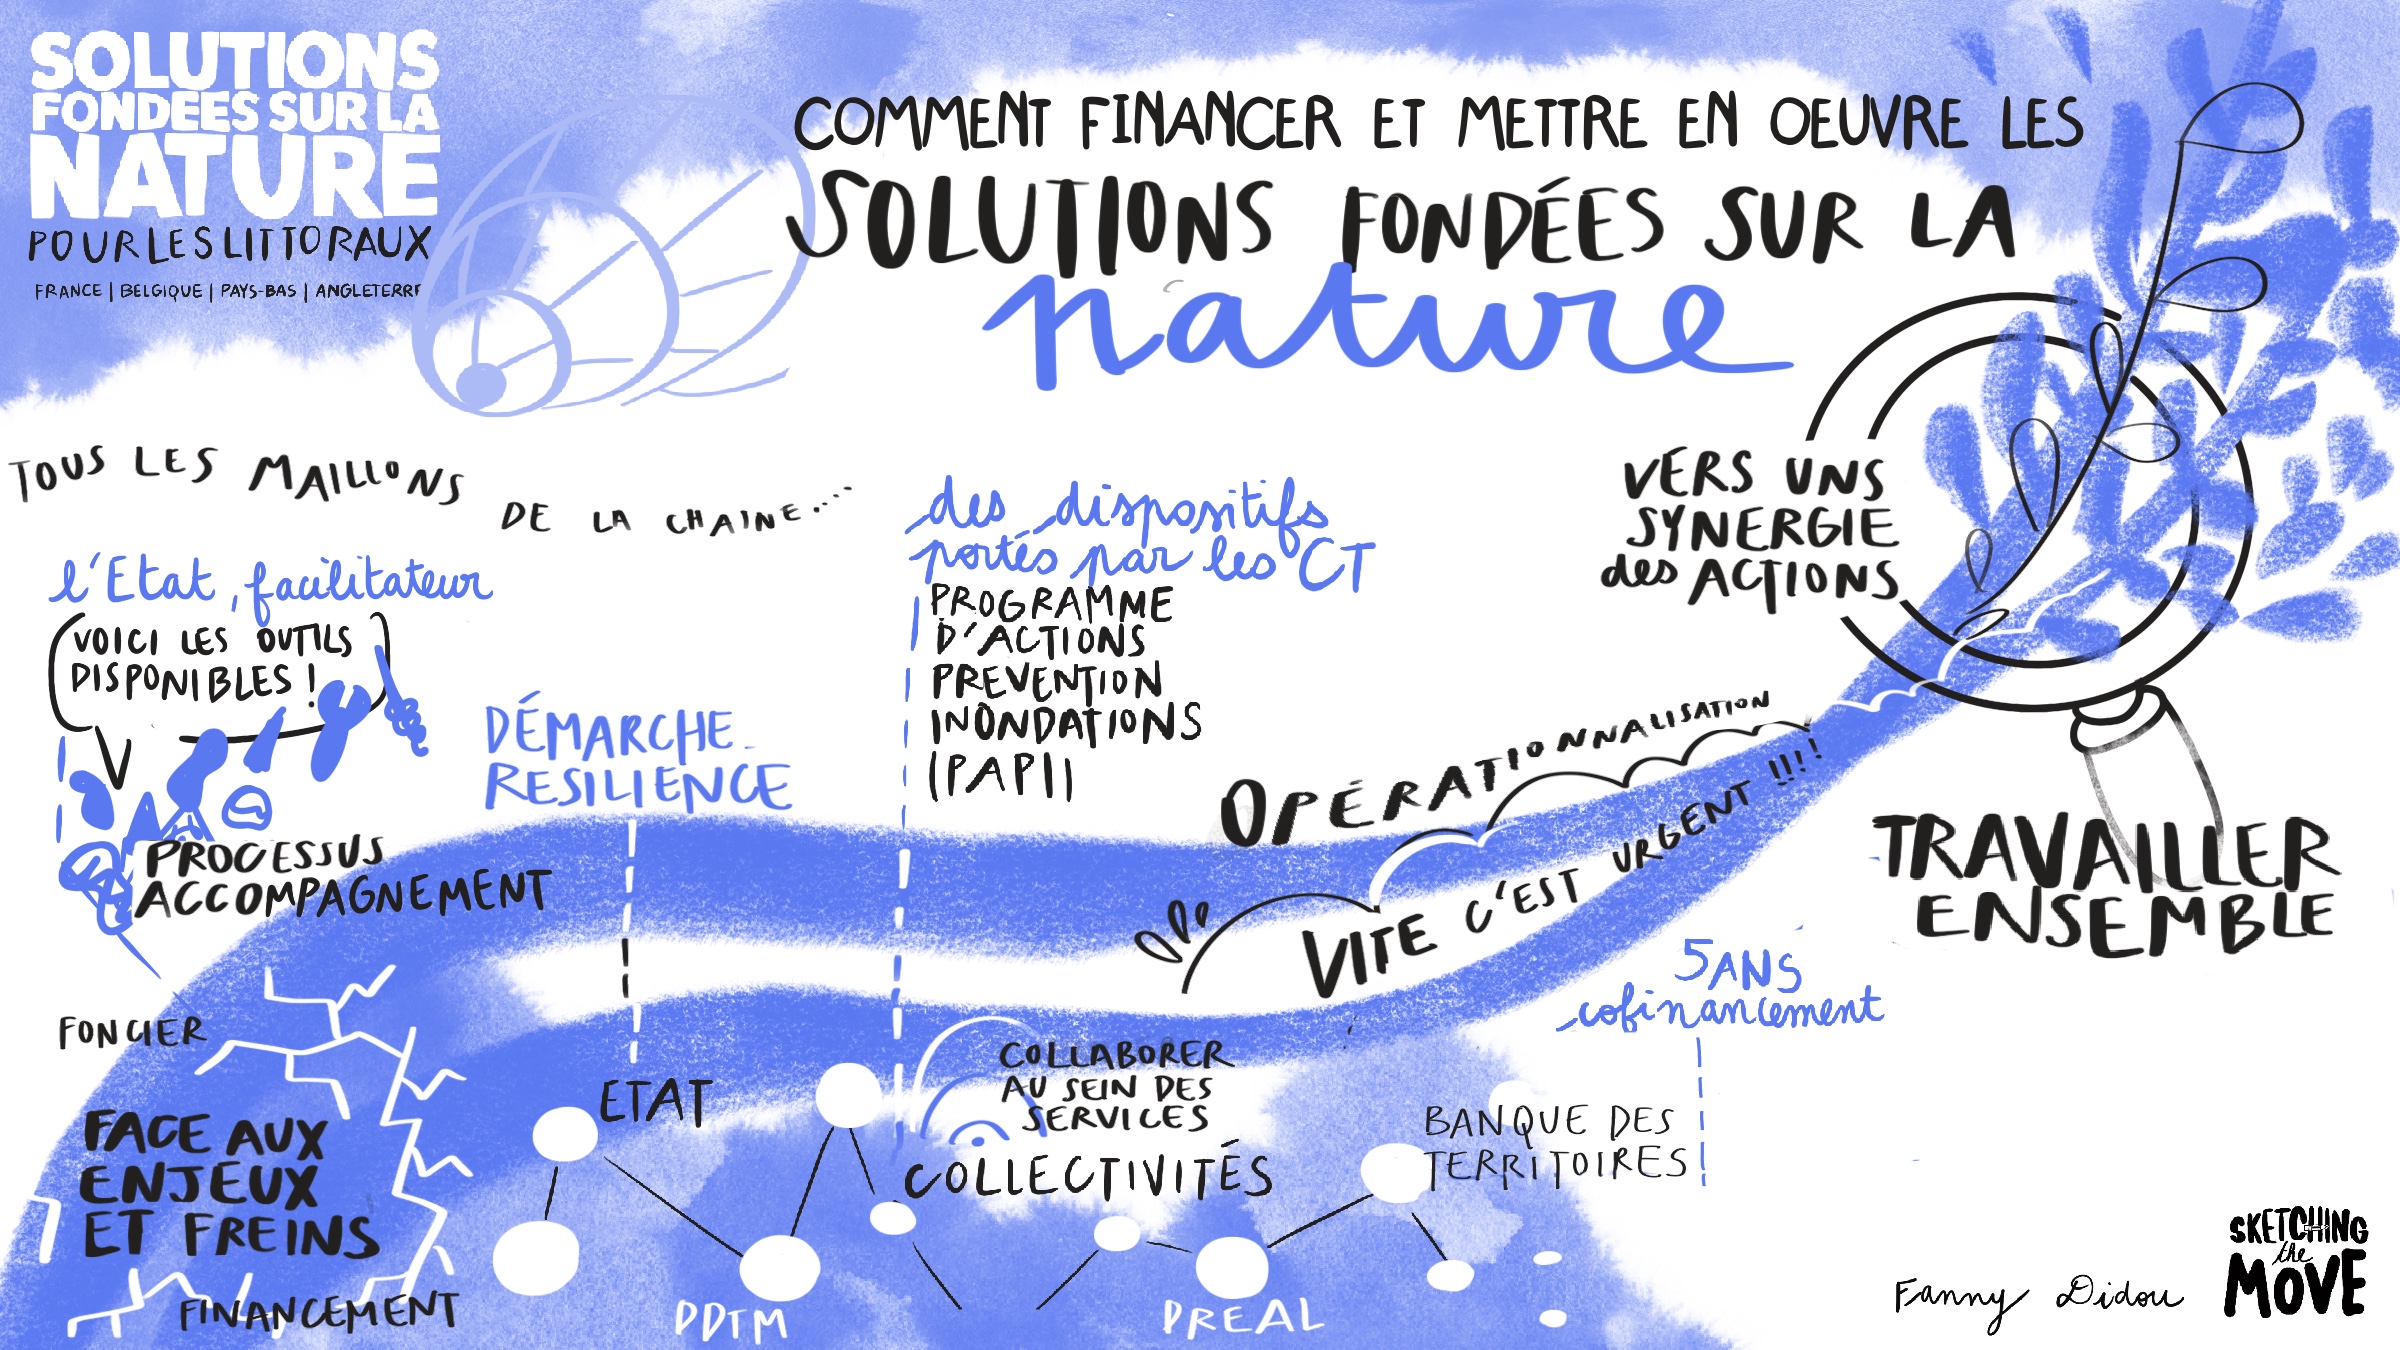 SOLUTIONS
FONDÉES SUR LA
NATURE
POUR LES LITTORAUX
FRANCE | BELGIQUE | PAYS-BAS | ANGLETERRE
COMMENT FINANCER ET METTRE EN OEUVRE LES
SOLUTIONS FONDÉES SUR LA
nature
TOUS LES MAILLONS
DE LA CHAINE....
l'Etat, facilitateur
VOICI LES OUTILS
DISPONIBLES !
PROCESSUS
ACCOMPAGNEMENT
DÉMARCHE
RESILIENCE
des dispositifs
portés par les CT
PROGRAMME
D'ACTIONS
PREVENTION
INONDATIONS
(PAPI)
VERS UNS
SYNERGIE
des ACTIONS
OPÉRATIONNALISATION
VITE C'EST URGENT !!!!
TRAVAILLER
ENSEMBLE
5 ANS
cofinancement
FONCIER
FACE AUX
ENJEUX
ET FREINS
FINANCEMENT
ETAT
DDTM
COLLABORER
AU SEIN DES
SERVICES
COLLECTIVITÉS
DREAL
BANQUE DES
TERRITOIRES
Fanny Didou
SKETCHING
the
MOVE